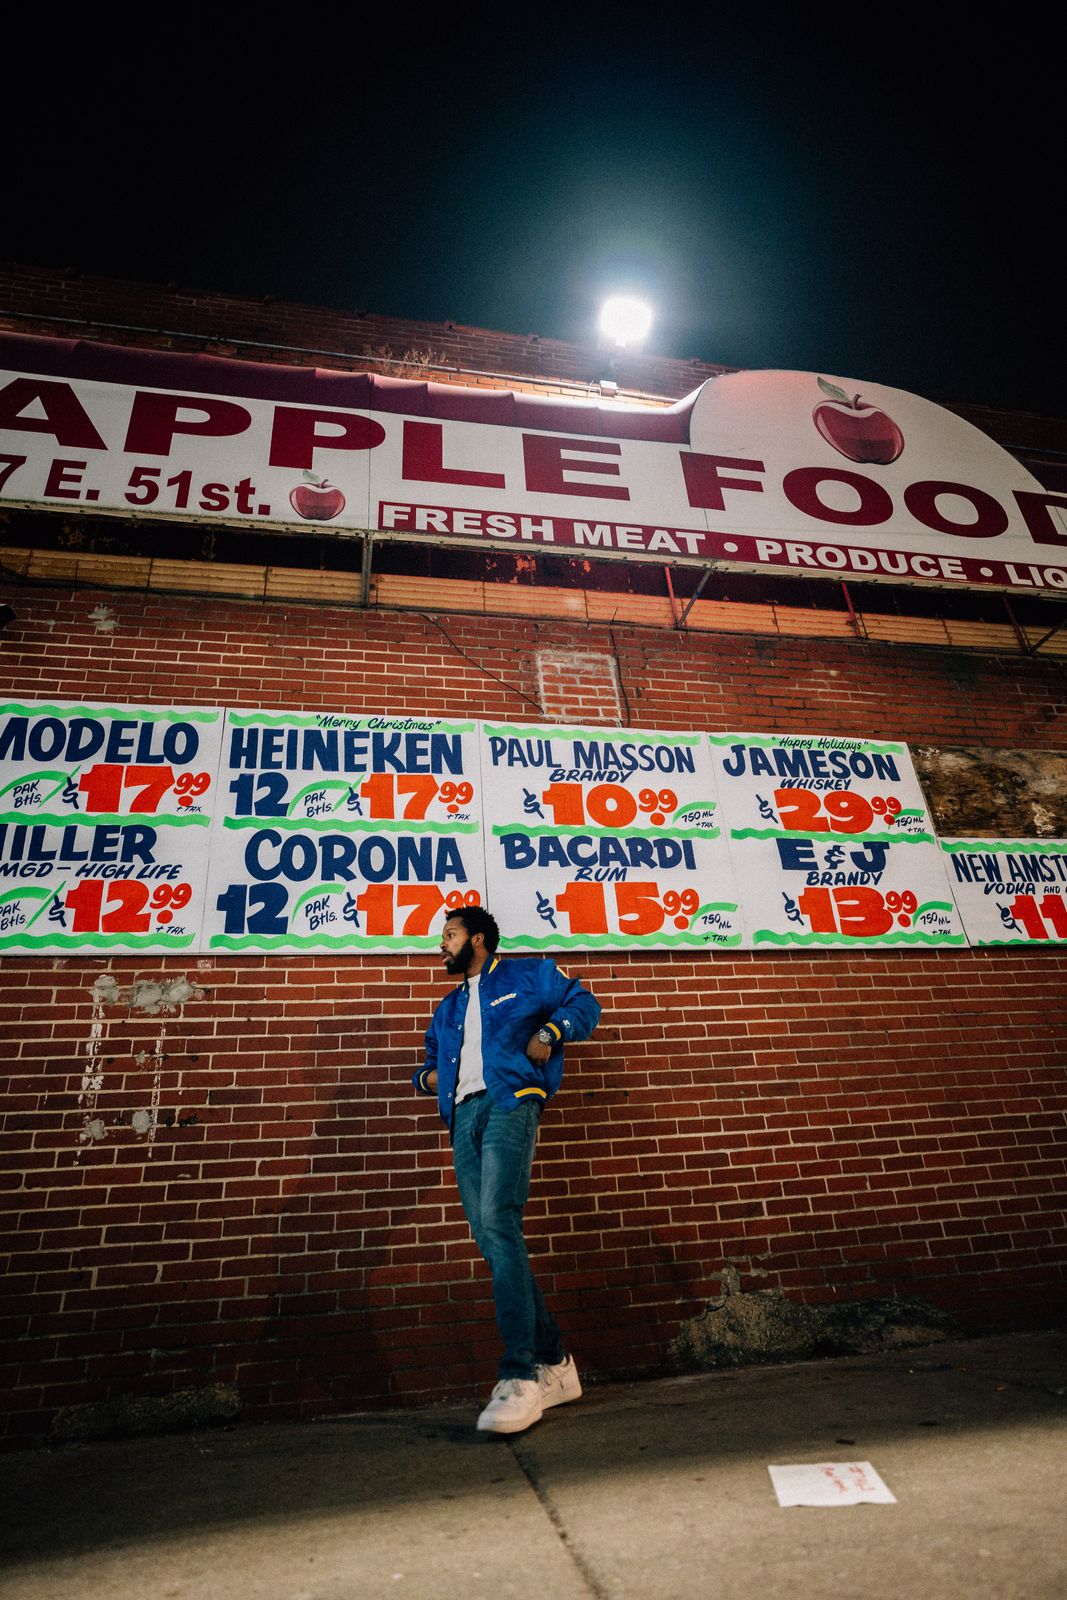 APPLE FOOD
7 E. 51st.
FRESH MEAT • PRODUCE • LIQ
MODELO
PAK
Btls.
$17.99
+ TAX
MILLER
MGD - HIGH LIFE
PAK
Btls.
$12.99
+ TAX
"Merry Christmas"
HEINEKEN
12 PAK
Btls.
$17.99
+ TAX
CORONA
12 PAK
Btls.
$17.99
PAUL MASSON
BRANDY
$10.99
750 ML
+ TAX
BACARDI
RUM
$15.99
750 ML
+ TAX
"Happy Holidays"
JAMESON
WHISKEY
$29.99
750 ML
+ TAX
E & J
BRANDY
$13.99
750 ML
+ TAX
NEW AMST
VODKA AND
$11